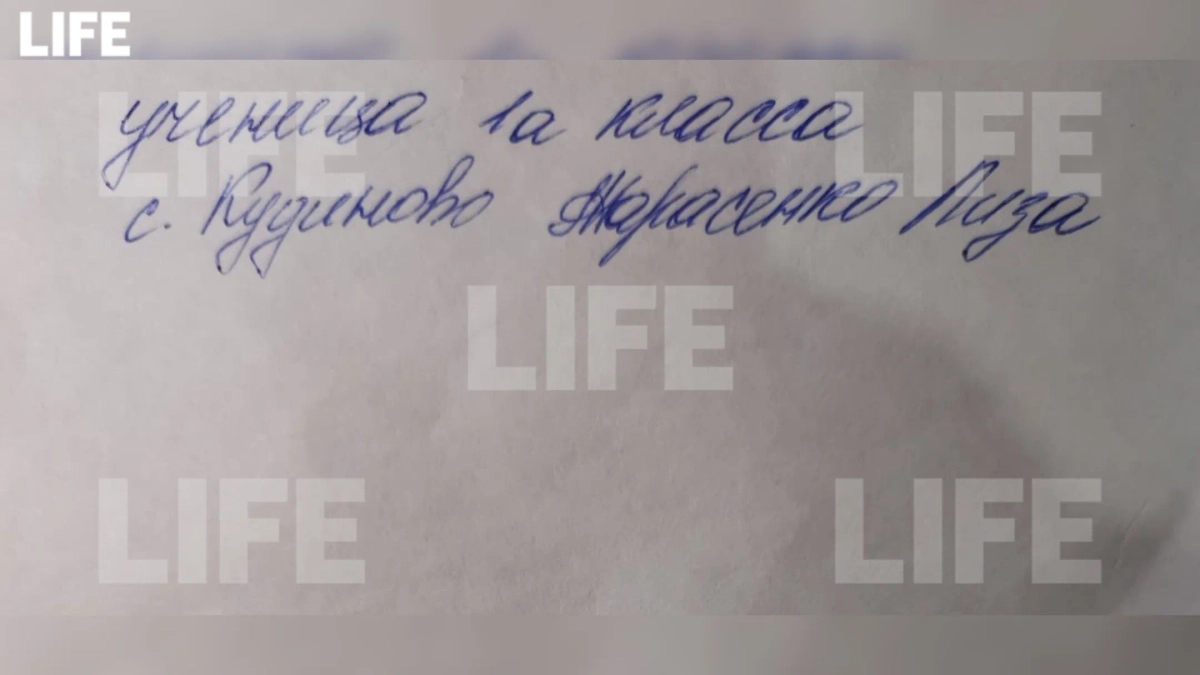 LIFE
ученица 1а класса
с. Кудиново Тарасенко Лиза
LIFE LIFE
LIFE
LIFE LIFE